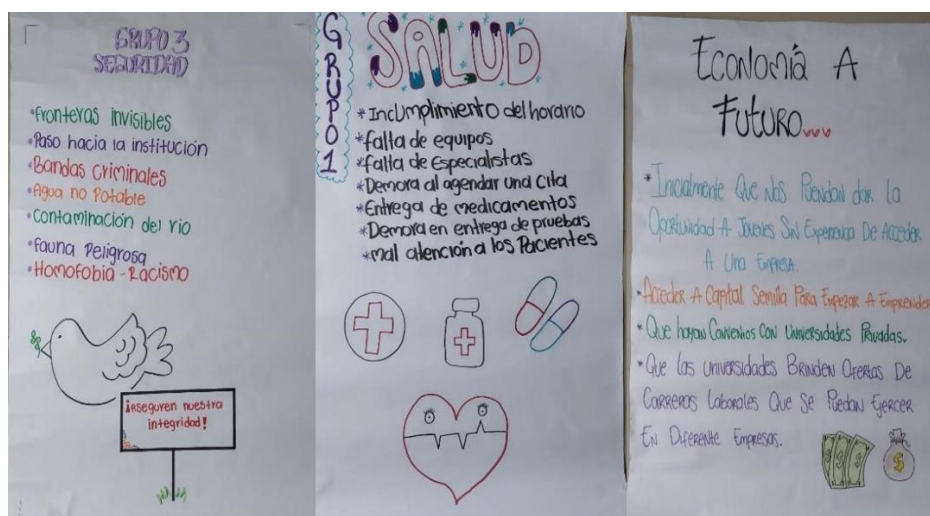 GRUPO 3
SEGURIDAD
*Fronteras invisibles
*Paso hacia la institución
*Bandas Criminales
*Agua no Potable
*Contaminación del río
*Fauna Peligrosa
*Homofobia - Racismo
¡Aseguren nuestra
integridad!
GRUPO 1
SALUD
*Incumplimiento del horario
*falta de equipos
*falta de Especialistas
*Demora al agendar una cita
*Entrega de medicamentos
*Demora en entrega de pruebas
*mal atención a los Pacientes
Economía A
Futuro...
*Inicialmente Que Nos Puendan dar la
Oportunidad A Jovenes Sin Experiencia De Acceder
A Una Empresa.
*Acceder A Capital Semilla Para Empezar A Emprender
*Que hayan Convenios Con Universidades Privadas.
*Que las universidades Brinden Ofertas De
Carreras Laborales Que Se Puedan Ejercer
En Diferente Empresas.